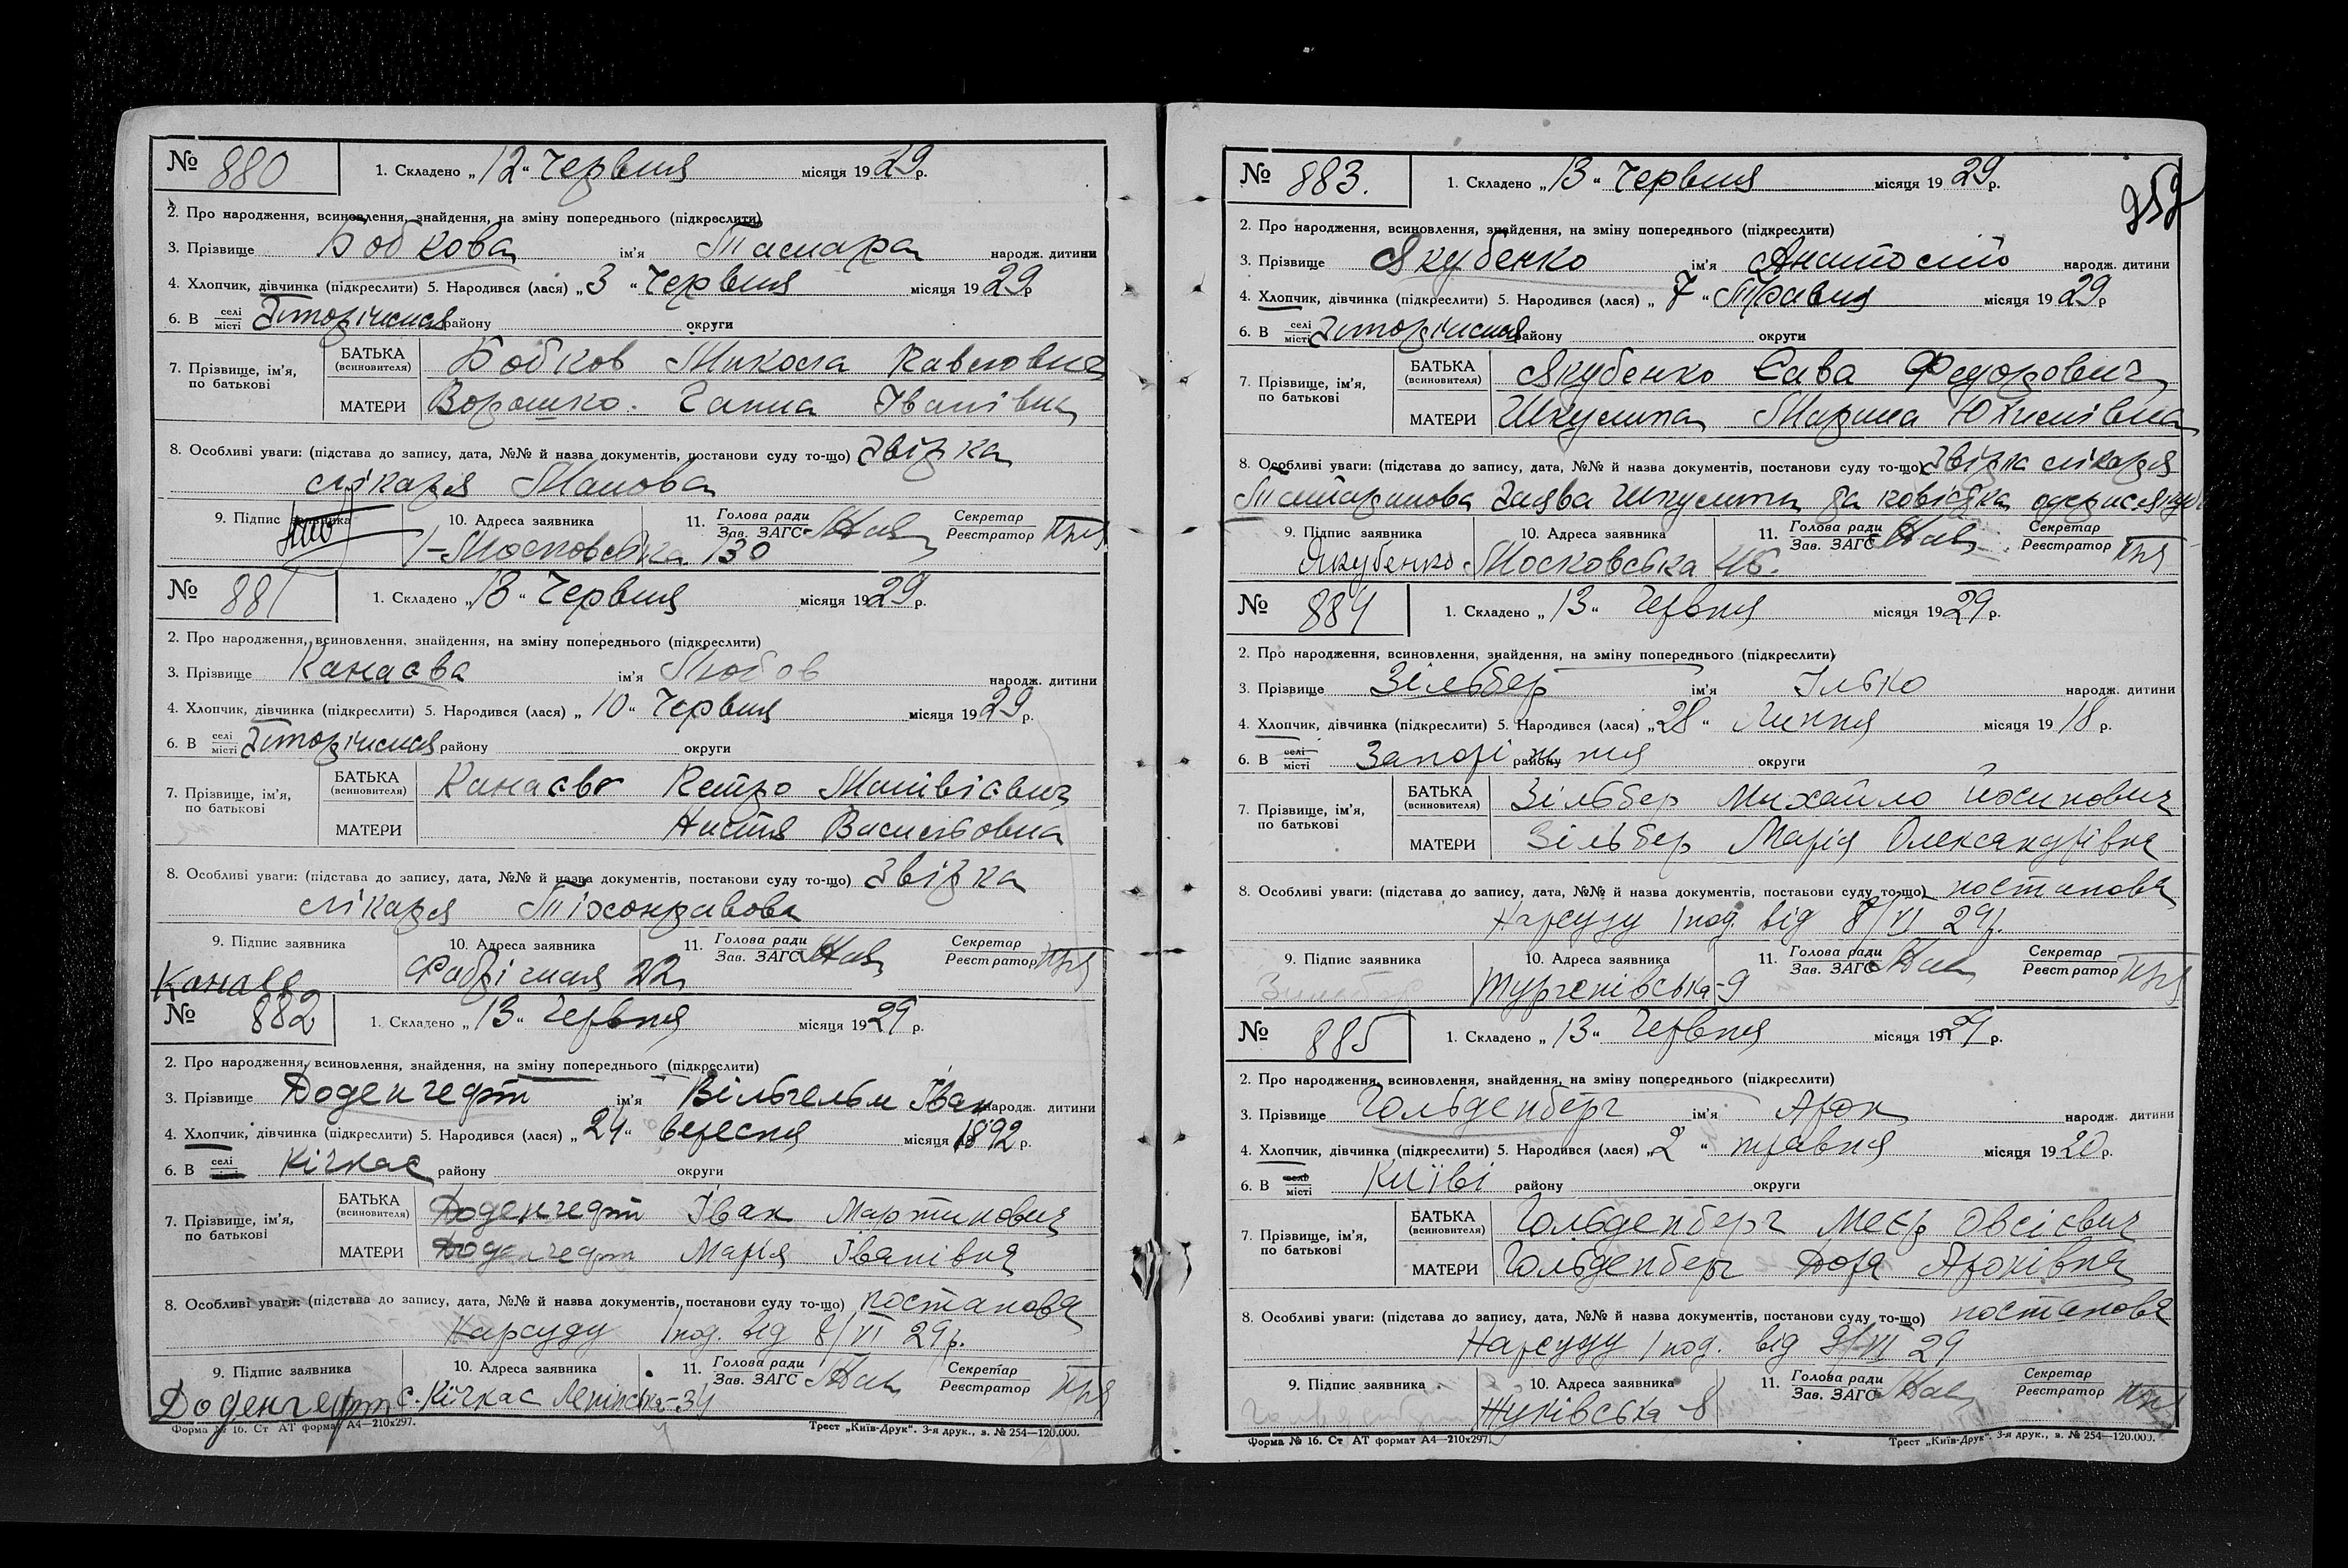 № 880 1. Складено „12“ Червня місяця 1929 р.
2. Про народження, всиновлення, знайдення, на зміну попереднього (підкреслити)
3. Прізвище Бобкова ім'я Тамара народж. дитини
4. Хлопчик, дівчинка (підкреслити) 5. Народився (лася) „3“ Червня місяця 1929 р.
6. В селі місті Запоріжжя району округи
7. Прізвище, ім'я, по батькові БАТЬКА (всиновителя) Бобков Микола Павлович
МАТЕРИ Ворошко Ганна Іванівна
8. Особливі уваги: (підстава до запису, дата, №№ й назва документів, постанови суду то-що) Звірка
лікаря
9. Підпис заявника 10. Адреса заявника 11. Голова ради Зав. ЗАГС Секретар Реєстратор
Московська 130
№ 881 1. Складено „13“ Червня місяця 1929 р.
2. Про народження, всиновлення, знайдення, на зміну попереднього (підкреслити)
3. Прізвище Канаєва ім'я Любов народж. дитини
4. Хлопчик, дівчинка (підкреслити) 5. Народився (лася) „10“ Червня місяця 1929 р.
6. В селі місті Запоріжжя району округи
7. Прізвище, ім'я, по батькові БАТЬКА (всиновителя) Канаєв Петро Матвієвич
МАТЕРИ Настя Васильовна
8. Особливі уваги: (підстава до запису, дата, №№ й назва документів, постанови суду то-що) Звірка
лікаря Тіхонравова
9. Підпис заявника 10. Адреса заявника 11. Голова ради Зав. ЗАГС Секретар Реєстратор
Канаев Фабрічная 22
№ 882 1. Складено „13“ Червня місяця 1929 р.
2. Про народження, всиновлення, знайдення, на зміну попереднього (підкреслити)
3. Прізвище Доденгефт ім'я Вільгельм Іван народж. дитини
4. Хлопчик, дівчинка (підкреслити) 5. Народився (лася) „24“ вересня місяця 1892 р.
6. В селі місті Кічкас району округи
7. Прізвище, ім'я, по батькові БАТЬКА (всиновителя) Доденгефт Іван Мартинович
МАТЕРИ Доденгефт Марія Іванівна
8. Особливі уваги: (підстава до запису, дата, №№ й назва документів, постанови суду то-що) постанова
Нарсуду 1 под. від 8/VI 29 р.
9. Підпис заявника 10. Адреса заявника 11. Голова ради Зав. ЗАГС Секретар Реєстратор
Доденгефт с. Кічкас Ленінська-34
Форма № 16. Ст АТ формат А4—210х297. Трест „Київ-Друк“. 3-я друк., з. № 254—120.000.
№ 883. 1. Складено „13“ Червня місяця 1929 р.
2. Про народження, всиновлення, знайдення, на зміну попереднього (підкреслити)
3. Прізвище Якубенко ім'я Анатолій народж. дитини
4. Хлопчик, дівчинка (підкреслити) 5. Народився (лася) „7“ Травня місяця 1929 р
6. В селі місті Запоріжжя району округи
7. Прізвище, ім'я, по батькові БАТЬКА (всиновителя) Якубенко Сава Федорович
МАТЕРИ Марина Юхимівна
8. Особливі уваги: (підстава до запису, дата, №№ й назва документів, постанови суду то-що) Звірка лікаря
заява та повістка
9. Підпис заявника 10. Адреса заявника 11. Голова ради Зав. ЗАГС Секретар Реєстратор
Якубенко Московська 46.
№ 884 1. Складено „13“ Червня місяця 1929 р.
2. Про народження, всиновлення, знайдення, на зміну попереднього (підкреслити)
3. Прізвище Зільбер ім'я Ілько народж. дитини
4. Хлопчик, дівчинка (підкреслити) 5. Народився (лася) „28“ Липня місяця 1918 р.
6. В селі місті Запоріжжя району округи
7. Прізвище, ім'я, по батькові БАТЬКА (всиновителя) Зільбер Михайло Йосипович
МАТЕРИ Зільбер Марія Олександрівна
8. Особливі уваги: (підстава до запису, дата, №№ й назва документів, постанови суду то-що) постанова
Нарсуду 1 под. від 8/VI 29 р.
9. Підпис заявника 10. Адреса заявника 11. Голова ради Зав. ЗАГС Секретар Реєстратор
Тургенівська-9
№ 885 1. Складено „13“ Червня місяця 1929 р.
2. Про народження, всиновлення, знайдення, на зміну попереднього (підкреслити)
3. Прізвище Гольденберг ім'я Арон народж. дитини
4. Хлопчик, дівчинка (підкреслити) 5. Народився (лася) „2“ травня місяця 1920 р.
6. В селі місті Київі району округи
7. Прізвище, ім'я, по батькові БАТЬКА (всиновителя) Гольденберг Меєр Овсієвич
МАТЕРИ Гольденберг Дора Аронівна
8. Особливі уваги: (підстава до запису, дата, №№ й назва документів, постанови суду то-що) постанова
Нарсуду 1 под. від VI 29
9. Підпис заявника 10. Адреса заявника 11. Голова ради Зав. ЗАГС Секретар Реєстратор
Жуківська-8
Форма № 16. Ст АТ формат А4—210х297. Трест „Київ-Друк“. 3-я друк., з. № 254—120.000.